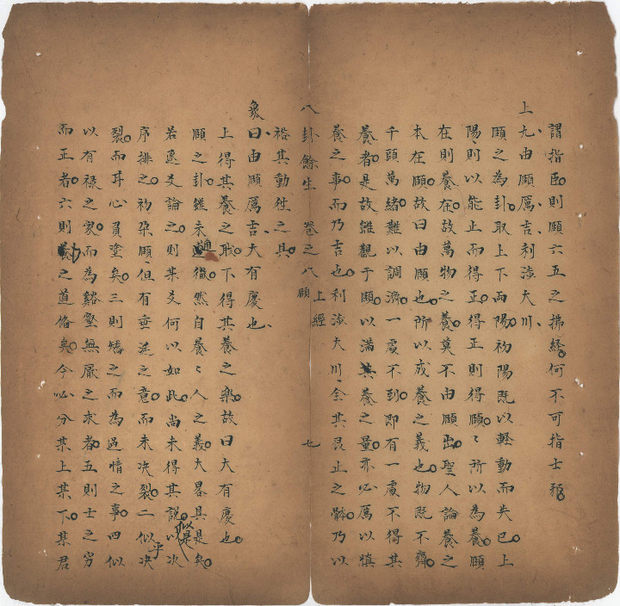 謂指臣則頤六五之拂經何不可指士邪
上九由頤厲吉利涉大川
頤之為卦取上下兩陽初陽既以輕動而失已上
陽則以能止而得正得正則得頤頤所以為養頤
在則養在故萬物之養莫不由頤出聖人論養之
本在頤故曰由頤也所以成養之義也物既不齊
千頭萬緒難以調濟一處不到即有一處不得其
養者是故雖觀于頤以滿其養之量亦必厲以慎
養之事而乃吉也利涉大川全其艮止之
乃以
八卦餘生 卷之八 上經 頤 七
裕其動往之具
象曰由頤厲吉大有慶也
上得其養之下得其養之樂故曰大有慶也
頤之卦雖未通復然自養養人之義大畧具是矣
若逐爻論之則某爻何以如此尚未得其說似是以次
序排之初朶頤但有垂涎之意而未決裂二似乎決
裂而耳心貿塗矣三則矯之而為過情之事四似
以有祿之家而為谿壑無厭之求者五則士之窮
而正者六則之道備矣今必分某上某下某君